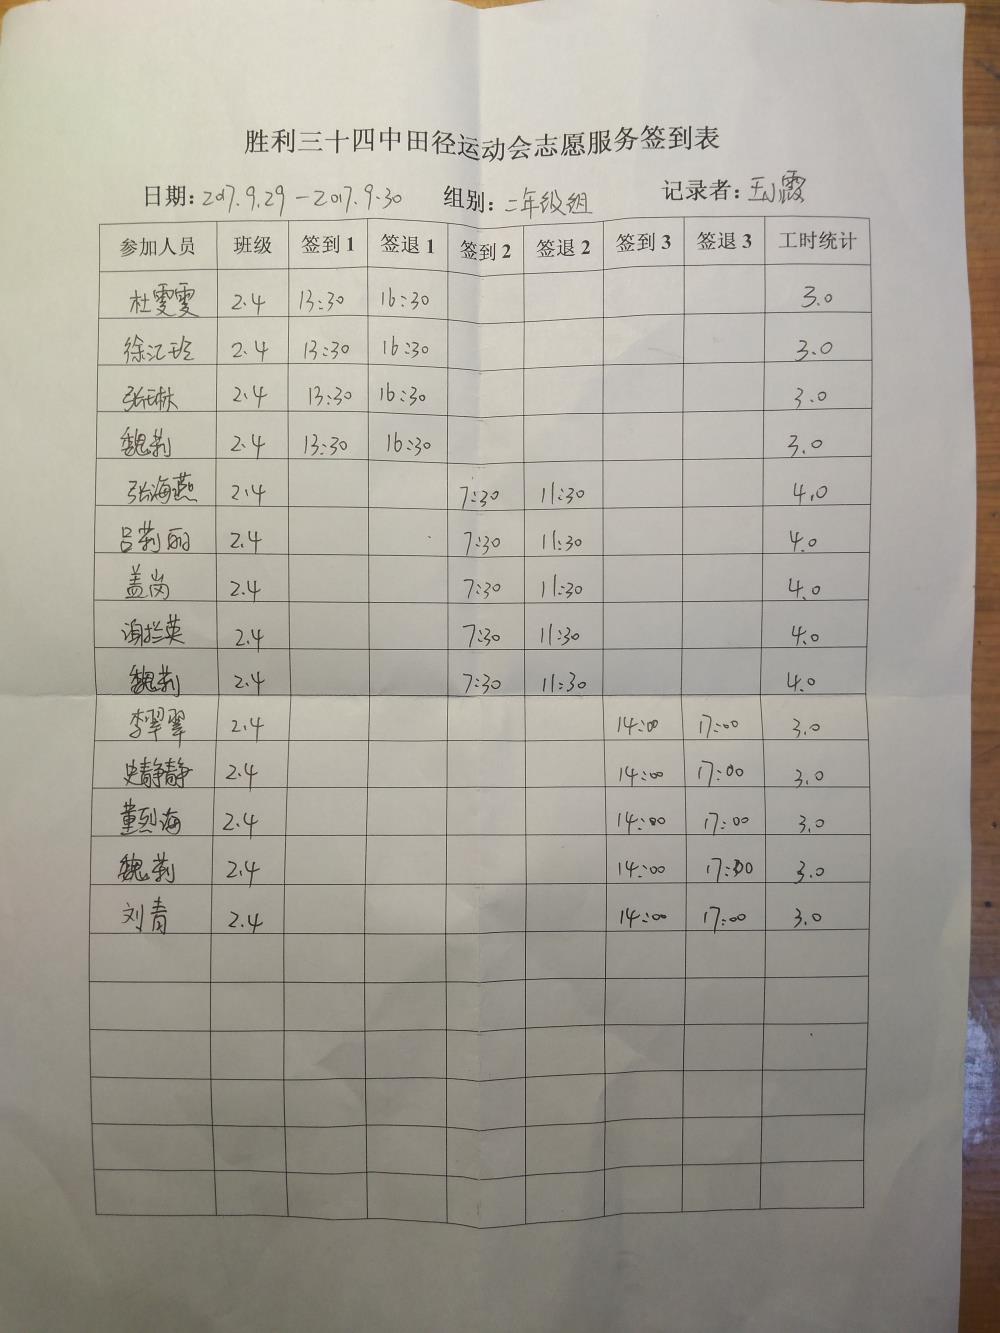 胜利三十四中田径运动会志愿服务签到表
日期:2017.9.29-2017.9.30 组别:二年级组 记录者:王小霞
参加人员 班级 签到1 签退1 签到2 签退2 签到3 签退3 工时统计
杜雯雯 2.4 13:30 16:30 3.0
徐江玲 2.4 13:30 16:30 3.0
张琳 2.4 13:30 16:30 3.0
魏莉 2.4 13:30 16:30 3.0
张海燕 2.4 7:30 11:30 4.0
吕莉丽 2.4 7:30 11:30 4.0
盖岗 2.4 7:30 11:30 4.0
谢兰英 2.4 7:30 11:30 4.0
魏莉 2.4 7:30 11:30 4.0
李翠翠 2.4 14:00 17:00 3.0
史静静 2.4 14:00 17:00 3.0
董烈海 2.4 14:00 17:00 3.0
魏莉 2.4 14:00 17:00 3.0
刘青 2.4 14:00 17:00 3.0